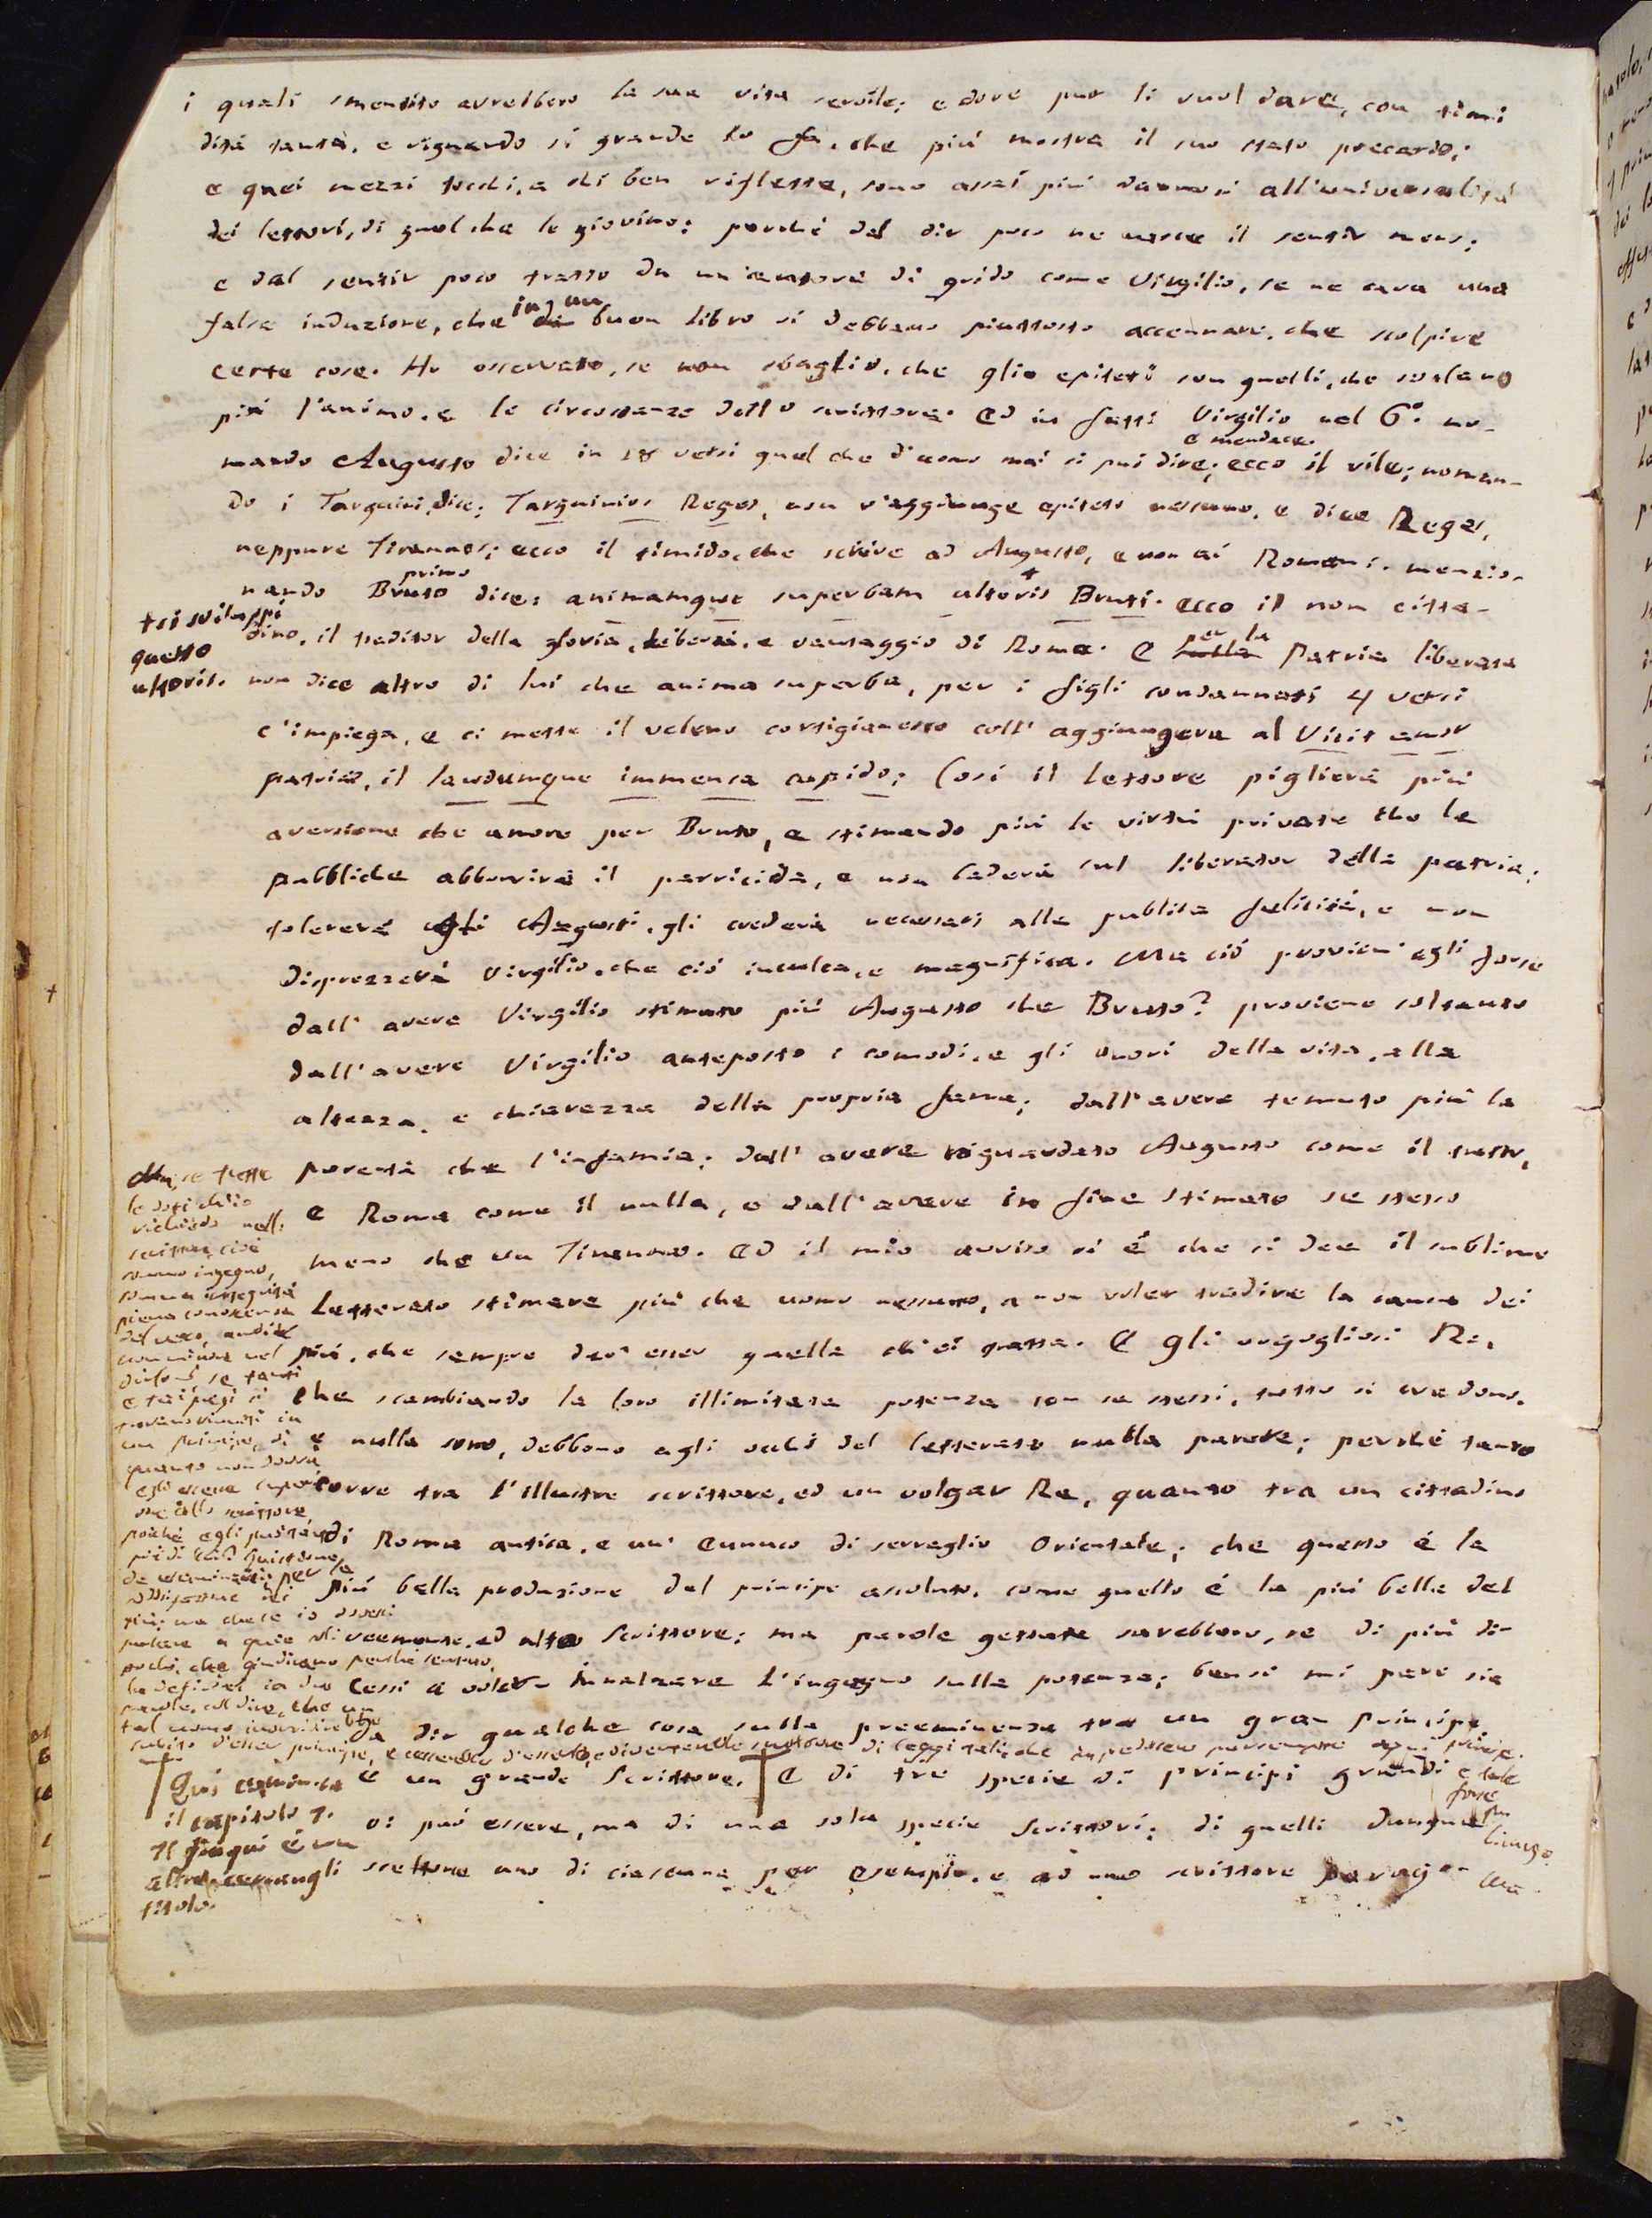 i quali smentito avrebbero la sua vita servile; e dove pur li vuol dare, con timi
dità tanta, e riguardo sì grande lo fa, che più mostra il suo stato precario;
e quei mezzi tocchi, a chi ben riflette, sono assai più dannosi all'universalità
dei lettori, di quel che le giovino: perché dal dir poco ne nasce il sentir meno;
e dal sentir poco tratto da un'autore di grido come Virgilio, se ne cava una
falsa induzione, che in un buon libro si debbano piuttosto accennare, che scolpire
certe cose. Ho osservato, se non sbaglio, che gli epiteti son quelli, che svelano
più l'animo, e le circostanze dello scrittore. Ed in fatti Virgilio nel 6°. no-
mando Augusto dice in versi quel che d'uomo mai si può dire; ecco il vile, e mendace; noman-
do i Tarquini, dice; Tarquinios Reges, non v'aggiunge epiteto nessuno, e dice Reges,
neppure Tirannos; ecco il timido, che scrive ad Augusto, e non ai Romani. menzio-
nando Bruto primo dice: animamque superbam ultoris + Bruti. ecco il non citta-
dino, il traditor della gloria, libertà, e vantaggio di Roma. E per la Patria liberata
+ si sviluppi
questo
ultoris.
non dice altro di lui che anima superba, per i figli condannati 4 versi
c'impiega, e ci mette il veleno cortigianesco coll'aggiungere al Vicit amor
patriae, il laudumque immensa cupido; Così il lettore piglierà più
aversione che amore per Bruto, e stimando più le virtù private che le
pubbliche abborrirà il parricida, e non baderà sul liberator della patria;
tolererà gli Augusti, gli crederà necessari alla publica felicità, e non
disprezzerà Virgilio, che ciò inculca, e magnifica. Ma ciò provien' egli forse
dall'avere Virgilio stimato più Augusto che Bruto? proviene soltanto
dall'avere Virgilio anteposto i comodi, e gli onori della vita, alla
altezza, e chiarezza della propria fama; dall'avere temuto più la
povertà che l'infamia; dall'avere riguardato Augusto come il tutto,
e Roma come il nulla, e dall'avere in fine stimato se stesso
meno che un Tiranno. Ed il mio avviso si è che si dee il sublime
Letterato stimare più che uomo nessuno, a non voler tradire la causa dei
più, che sempre dev'esser quella ch'ei tratta. E gli orgogliosi Re,
che scambiando la loro illimitata potenza con se stessi, tutto si credono,
e nulla sono, debbono agli occhi del letterato nulla parere; perché tanto
corre tra l'illustre scrittore, ed un volgar Re, quanto tra un cittadino
di Roma antica, e un' Eunuco di serraglio Orientale; che questo è la
più bella produzione del principe assoluto, come quello è la più bella del
veemente, ed alto Scrittore; ma parole gettate sarebbero, se di più di-
cessi a voler innalzare l'ingegno sulla potenza; bensì mi pare sia
da dir qualche cosa sulla preeminenza tra un gran principe
e un grande Scrittore. E di tre specie di principi grandi
vi può essere, ma di una sola specie Scrittori; di quelli dunque
gli scettone uno di ciascuna per esempio, e ad uno scrittore parago-
Ma, se tutte
le doti ch'io
richiedo nello
scrittore, cioè
sommo ingegno,
somma integrità
piena conoscenza
del vero, ardire
non minore nel
dirlo; se tanti
e tai pregi si
trovano riuniti in
un principe, di
quanto non dovrà
egli essere superi
ore allo scrittore,
poiché egli
tal uomo
subito d'esser principe, e di leggi tali che impedissero per sempre ogni principe.
e tale
forse
fu
Licurgo.
Ma
Qui comincia
il capitolo 7.
Il fin qui è un
altro
titolo.